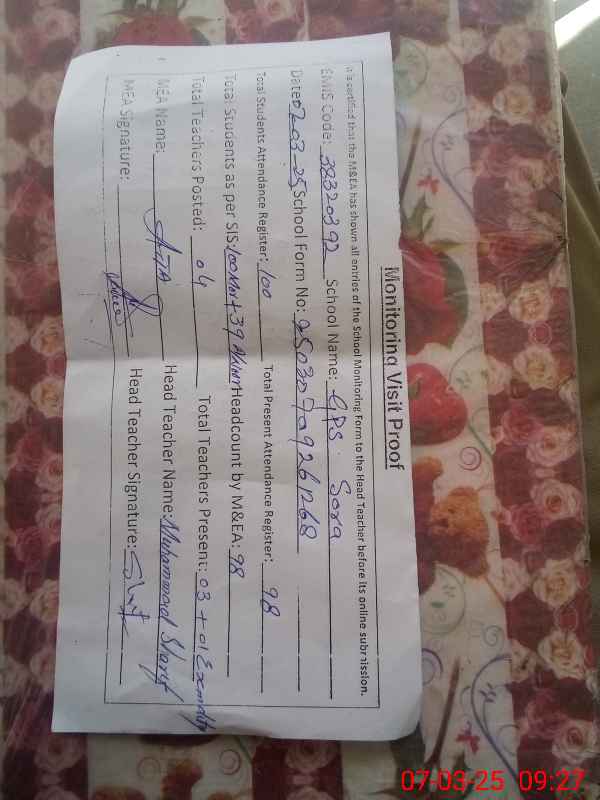 Monitoring Visit Proof
It is certified that the M&EA has shown all entries of the School Monitoring Form to the Head Teacher before its online submission.
EMIS Code: 38320392 School Name: GPS Sora
Date: 07-03-25 School Form No:
Total Students Attendance Register: 100 Total Present Attendance Register: 98
Total Students as per SIS: 100 Headcount by M&EA: 98
Total Teachers Posted: 04 Total Teachers Present: 03 + 01
MEA Name: Head Teacher Name: Muhammad Sharif
MEA Signature: Head Teacher Signature:
07-03-25 09:27